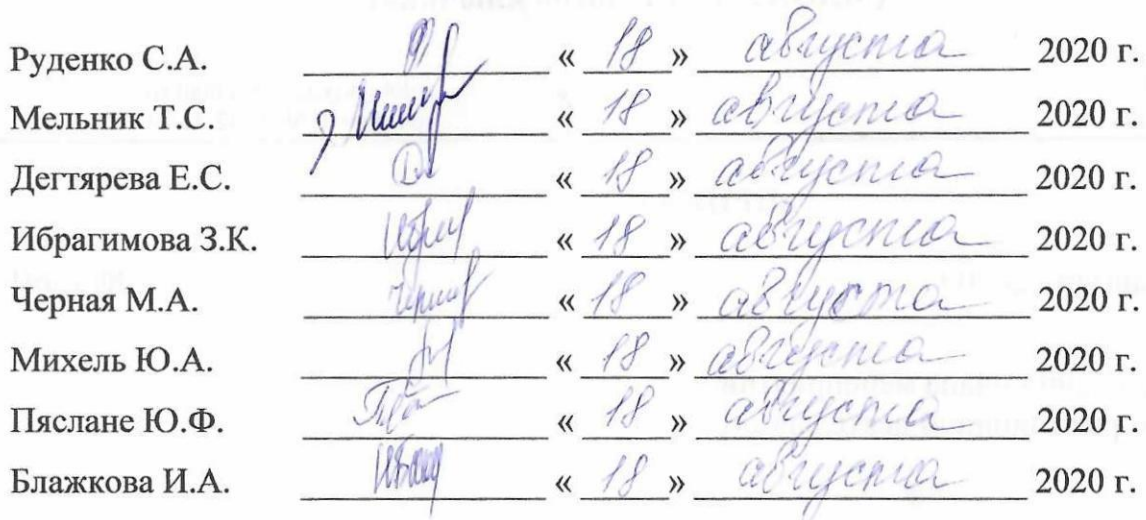 Руденко С.А. « 18 » августа 2020 г.
Мельник Т.С. « 18 » августа 2020 г.
Дегтярева Е.С. « 18 » августа 2020 г.
Ибрагимова З.К. « 18 » августа 2020 г.
Черная М.А. « 18 » августа 2020 г.
Михель Ю.А. « 18 » августа 2020 г.
Пяслане Ю.Ф. « 18 » августа 2020 г.
Блажкова И.А. « 18 » августа 2020 г.